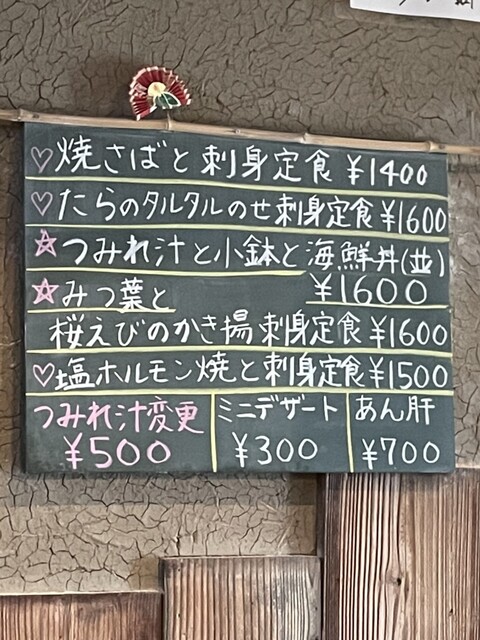 ♡焼さばと刺身定食 ¥1400
♡たらのタルタルのせ刺身定食¥1600
☆つみれ汁と小鉢と海鮮丼(並)
¥1600
☆みつ葉と
桜えびのかき揚 刺身定食¥1600
♡塩ホルモン焼と刺身定食¥1500
つみれ汁変更
¥500
ミニデザート
¥300
あん肝
¥700